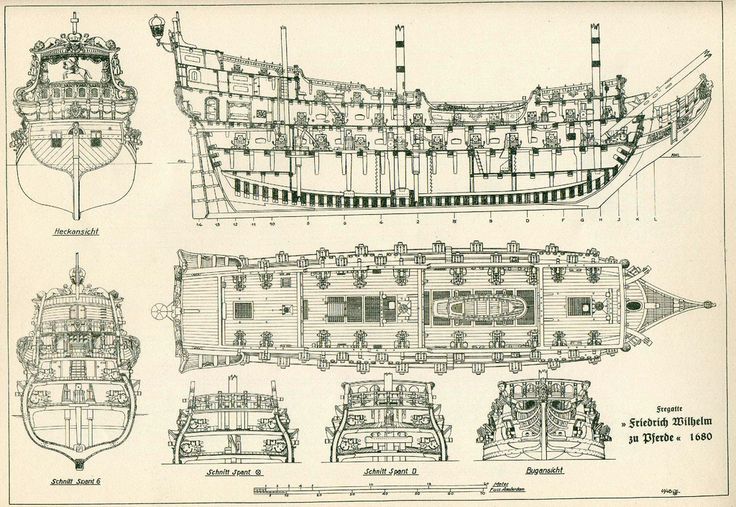 KWL
KWL
14 13 12 11 10 8 6 4 2 B D F G H J K L
Heckansicht
Schnitt Spant 6
Schnitt Spant ⊗
Schnitt Spant D
Bugansicht
Fregatte
» Friedrich Wilhelm
zu Pferde « 1680
Meter
Fuss Amsterdam